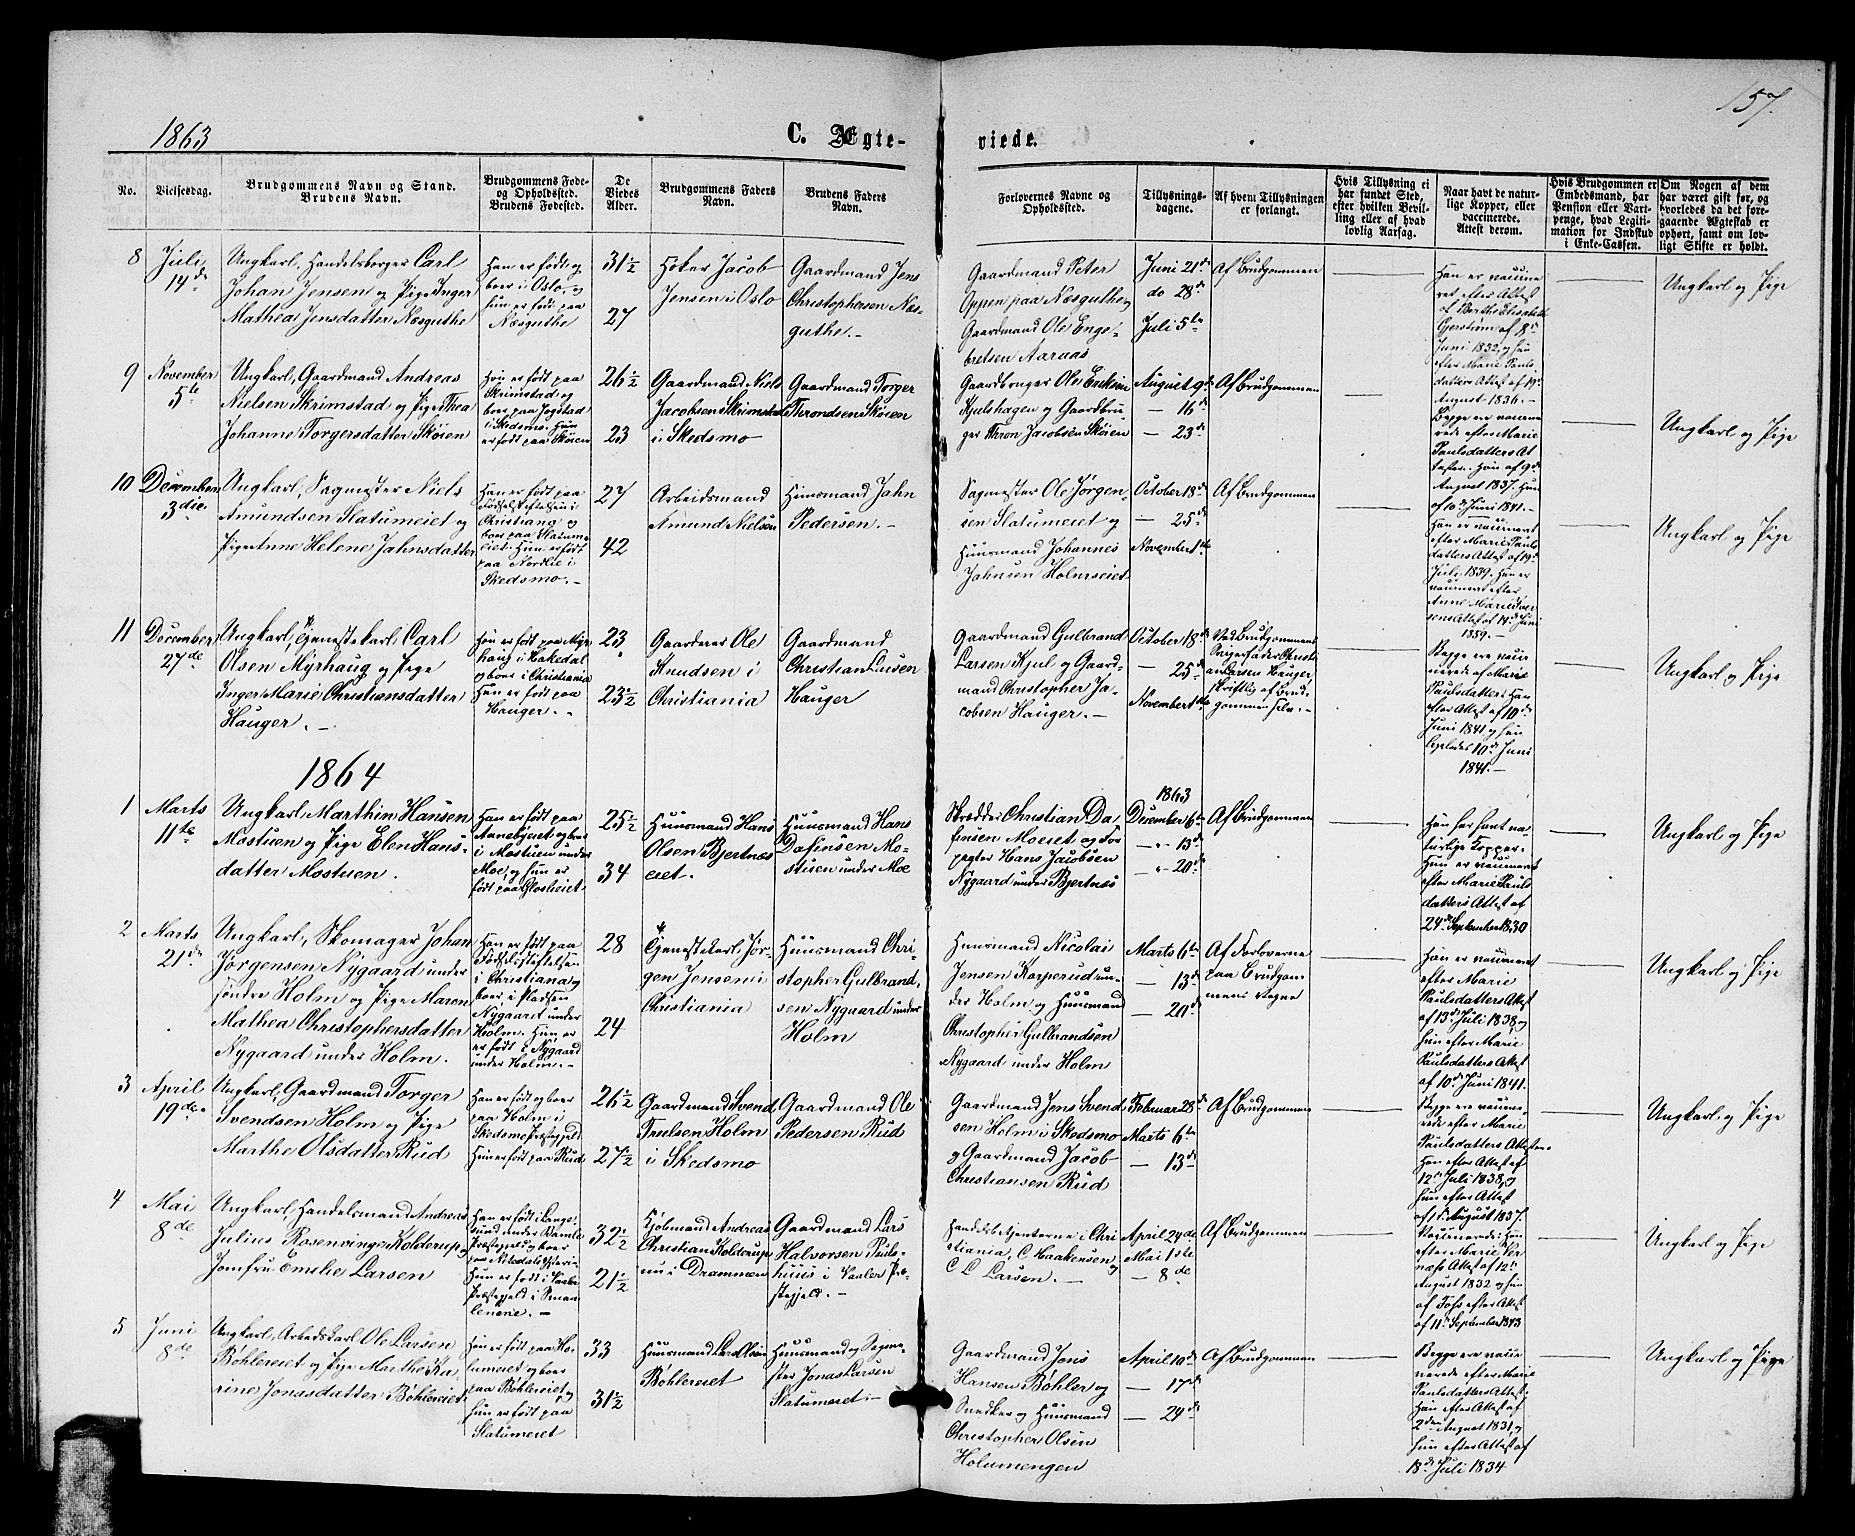 157.
1863
C. Ægte-
viede.
No.
Vielsesdag.
Brudgommens Navn og Stand.
Brudens Navn.
Brudgommens Føde-
og Opholdssted.
Brudens Fødested.
De
Viedes
Alder.
Brudgommens Faders
Navn.
Brudens Faders
Navn.
Forlovernes Navne og
Opholdssted.
Tillysnings-
dagene.
Af hvem Tillysningen
er forlangt.
Hvis Tillysning ei
har fundet Sted,
efter hvilken Bevil-
ling eller af hvad
lovlig Aarsag.
Naar havt de natur-
lige Kopper, eller
vaccinerede.
Attest derom.
Hvis Brudgommen er
Embedsmand, har
Pension eller Vart-
penge, hvad Legiti-
mation for Indskud
i Enke-Cassen.
Om Nogen af dem
har været gift før, og
hvorledes da det fore-
gaaende Ægteskab er
ophørt, samt om lov-
ligt Skifte er holdt.
8
Juli
14de
Ungkarl, Handelsborger Carl
Johan Jensen og Pige Inger
Mathea Jensdatter Næsguthe
Han er født og
boer i Oslo, og
hun er født paa
Næsguthe
31½
27
Høker Jacob
Jensen i Oslo
Gaardmand Jens
Christophersen Næs-
guthe.-
Gaardmand Peter
Oppen paa Næsguthe og
Gaardmand Ole Enge-
bretsen Aaraas
Juni 21de
do 28de
Juli 5te
Af Brudgommen
Han er vaccine
ret efter Attest
af Berthe Elisabeth
Gjerstrøm af 8de
Juni 1832, og hun
efter Marie Pauls-
datters Attest af 19de
August 1836.-
Ungkarl og Pige
9
November
5te
Ungkarl, Gaardmand Andreas
Nielsen Skrimstad og Pige Thea
Johanne Torgersdatter Skøien
Han er født paa
Skrimstad og
boer paa Jogstad
i Skedsmo. Hun
er født paa Skøien
26½
23
Gaardmand Niels
Jacobsen Skrimstad
i Skedsmo
Gaardmand Torger
Throndsen Skøien
Gaardbruger Ole Eriksen
Kjulshagen og Gaardbru-
ger Thron Jacobsen Skøien
August 9de
- 16de
- 23de
Af Brudgommen
Begge ere vaccine
rede efter Marie
Paulsdatters At
tester. Han af 9de
August 1837. Hun
af 10de Juni 1841.-
Ungkarl og Pige
10
December
3die
Ungkarl, Sagmester Niels
Amundsen Slatumeiet og
Pige Anne Helene Jahnsdatter
Han er født paa
Fødselsstiftelsen i
Christiania og
boer paa Slatum-
eiet. Hun er født
paa Nordlie i
Skedsmo.-
27
42
Arbeidsmand
Amund Nielsen
Huusmand Jahn
Pedersen.-
Sagmester Ole Jørgen-
sen Slatumeiet og
Huusmand Johannes
Jahnsen Holmseiet
October 18de
- 25de
November 1ste
Af Brudgommen
Han er vaccineret
efter Marie Pauls
datters Attest af 19de
Juli 1839. Hun er
vaccineret efter
Anne Marie
Attest af 14de Juni
1859.-
Ungkarl og Pige
11
December
27de
Ungkarl, Tjenestekarl Carl
Olsen Myrhaug og Pige
Inger Marie Christiansdatter
Hauger.-
Han er født paa Myr
haug i Hakedal
og boer i Christiania
Hun er født paa
Hauger.-
23
23½
Gaardeier Ole
Knudsen i
Christiania
Gaardmand
Christian Larsen
Hauger
Gaardmand Gulbrand
Larsen Kjul og Gaard-
mand Christopher Ja-
cobsen Hauger.-
October 18de
- 25de
November 1ste
Ved Brudgommens
Svigerfader Christi
an Larsen Hauger,
skriftlig af Brud-
gommen selv.-
Begge ere vacci
nerede af Marie
Paulsdatter. Han
efter Attest af 19de
Juni 1841 og hun
10de Juni
1841.-
Ungkarl og Pige
1864
1
Marts
11te
Ungkarl Marthin Hansen
Mostuen og Pige Elen Hans-
datter Mostuen.
Han er født paa
Annebyeiet og boer
i Mostuen under
Moe, og hun er
født paa Glosleiet
25½
34
Huusmand Hans
Olsen Bjertnæs
eiet.
Huusmand Hans
Dafinsen Mo-
stuen under Moe
Skredder Christian Da-
finsen Moeiet og For
pagter Hans Jacobsen
Nygaard under Bjertnæs
1863
December 6te
-"- 13de
-"- 20de
Af Brudgommen
Han har havt na-
turlige Kopper.
Hun er vaccineret
efter Marie Pauls
datters Attest af
24de September 1830
Ungkarl og Pige
2
Marts
21de
Ungkarl, Skomager Johan
Jørgensen Nygaard under
søndre Holm og Pige Maren
Mathea Christophersdatter
Nygaard under Holm.
Han er født paa
Fødselsstiftelsen
i Christiana og
boer i Pladsen
Nygaard under
Holm. Hun er
er født i Nygaard
under Holm.-
28
24
Tjenestekarl Jør-
gen Jensen i
Christiania
Huusmand Chri-
stopher Gulbrand-
sen Nygaard under
Holm
Huusmand Nicolai
Jensen Korperud un-
der Holm og Huusmand
Christopher Gulbrandsen
Nygaard under Holm
Marts 6te
- 13de
- 20de
Af Forloverne
paa Brudgom
mens vegne
Han er vaccineret
efter Marie
Paulsdatters Attest
af 13de Juli 1838, og
hun efter Marie
Paulsdatters Attest
af 10de Juni 1841.
Ungkarl og Pige
3
April
19de
Ungkarl, Gaardmand Torger
Svendsen Holm og Pige
Marthe Olsdatter Rud
Han er født og boer
paa Holm i
Skedsmo Præstegjeld
Hun er født paa Rud
26½
27½
Gaardmand Svend
Truelsen Holm
i Skedsmo
Gaardmand Ole
Pedersen Rud
Gaardmand Jens Svend
sen Holm i Skedsmo
og Gaardmand Jacob
Christiansen Rud
Februar 28de
Marts 6te
- 13de
Af Brudgommen
Begge ere vaccine-
rede efter Marie
Paulsdatters Attester.
Han efter Attest af
12te Juli 1838, og
hun efter Attest
af 1de August 1837.
Ungkarl og Pige
4
Mai
8de
Ungkarl Handelsmand Andreas
Julius Rosenvinge Kolderup og
Jomfru Emelie Larsen
Han er født i Lange
sund under Bamle
Præstegjeld og boer
paa Nitedals
Hun er født i Vaaler
Præstegjeld i Smaa-
lenene.-
32½
21½
Kjøbmand Andreas
Christian Kolderup
nu i Drammen
Gaardmand Lars
Halvorsen
huus i Vaaler Præ-
stegjeld.-
Handelsbetjenterne i Chri
stiania, C Haakensen og
C L Larsen.-
April 24de
Mai 1ste
- 8de
Af Brudgommen
efter Marie
Attest af 12te
August 1832 og hun
af efter Attest
af 11te September 1843
Ungkarl og Pige
5
Juni
8de
Ungkarl, Arbeidskarl Ole Larsen
Bøhlereiet og Pige Marthe Ka
rine Jonasdatter Bøhlereiet
Han er født paa Ho-
lumeiet og boer
paa Bøhlereiet, og
hun er født paa
Slatumeiet
33
31½
Huusmand Lars Olsen
Bøhlereiet
Huusmand og Sagme-
ster Jonas Larsen
Slatumeiet.-
Gaardmand Jonis
Hansen Bøhler og
Snedker og Huusmand
Christopher Olsen
Holumengen
April 10de
- 17de
- 24de
Af Brudgommen
Begge ere vacci
nerede af Marie
Paulsdatters Attest.
Han efter Attest af
2den August 1831, og
hun efter Attest af
18de Juli 1834
Ungkarl og Pige